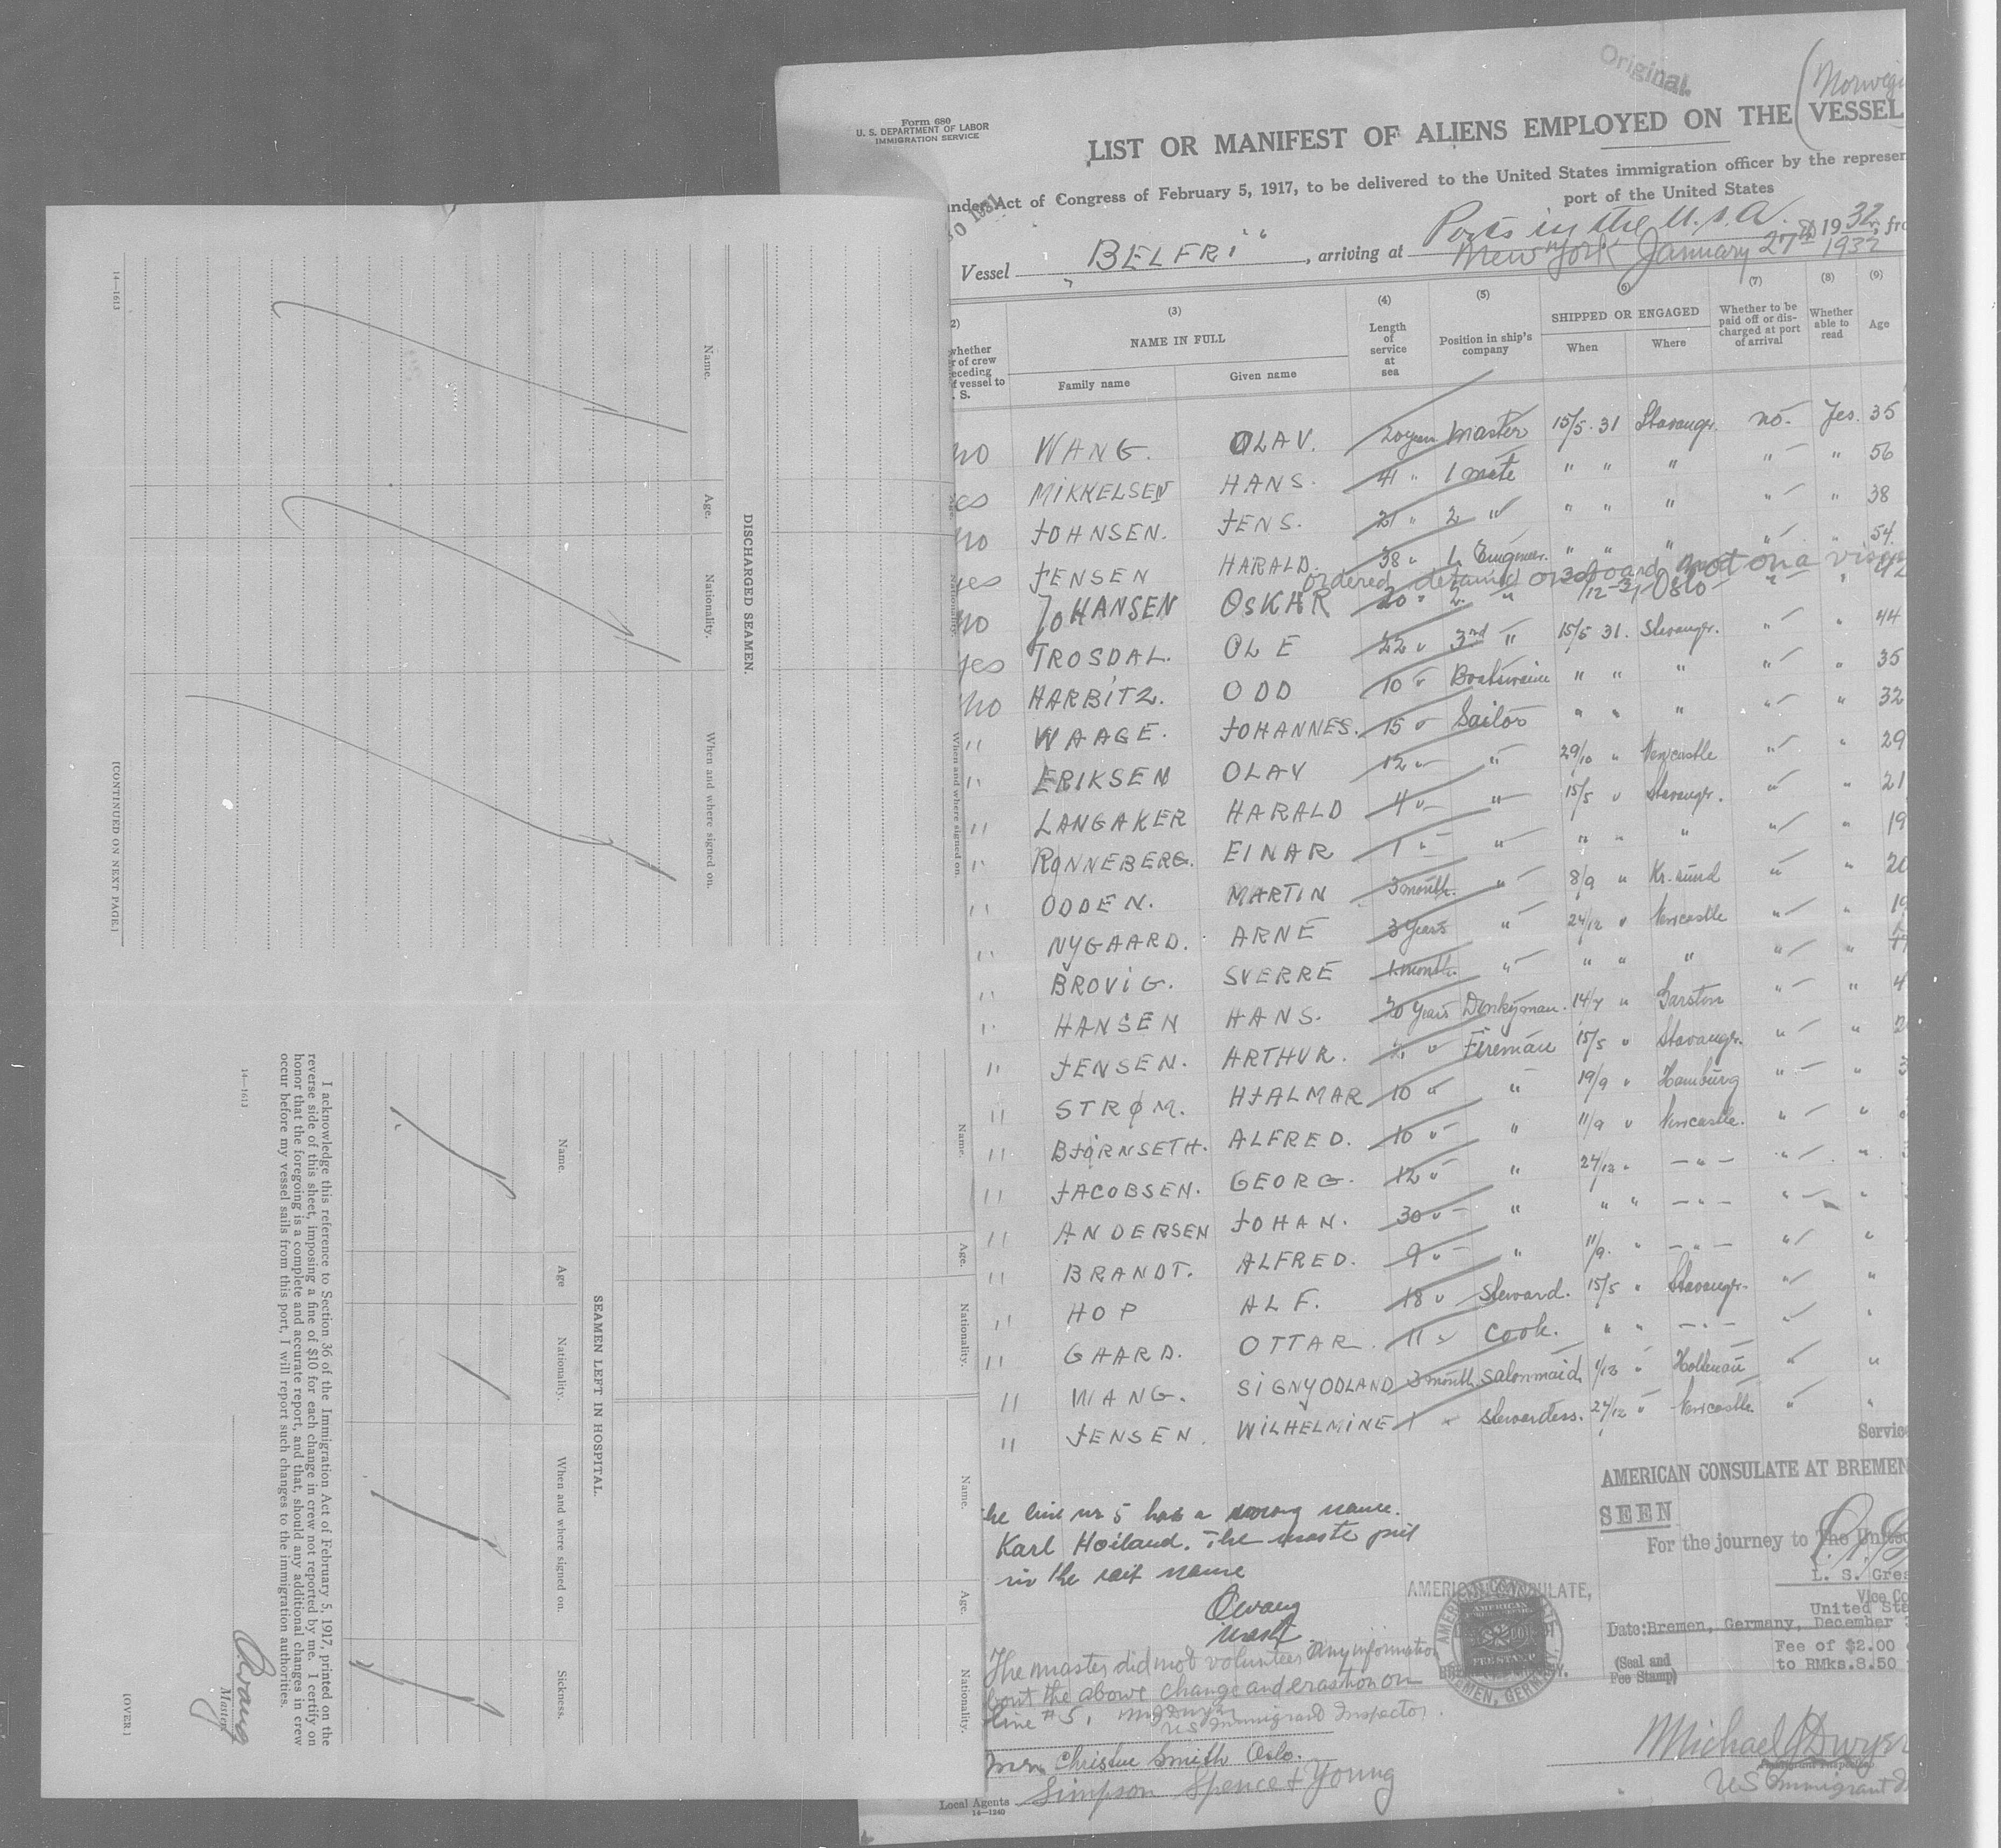 Original
(Norwegi
Form 680
U. S. DEPARTMENT OF LABOR
IMMIGRATION SERVICE
LIST OR MANIFEST OF ALIENS EMPLOYED ON THE VESSEL
under Act of Congress of February 5, 1917, to be delivered to the United States immigration officer by the represen
port of the United States
Vessel "BELFRi", arriving at Ports in the U.S.A. 1932, fro
New York January 27th 1932
(3) (4) (5) (6) (7) (8) (9)
NAME IN FULL
Family name Given name
Length of service at sea
Position in ship's company
SHIPPED OR ENGAGED
When Where
Whether to be paid off or discharged at port of arrival
Whether able to read
Age
no WANG. OLAV. 20 years Master 15/5. 31 Stavanger. no. Yes. 35
yes MIKKELSEN HANS. 41 " 1 mate " " " " " 56
no JOHNSEN. JENS. 21 " 2 " " " " " " 38
yes JENSEN HARALD. 38 " 1. Engineer. " " " " " 54
ordered detained on board not on a visa
no JOHANSEN OSKAR 20 " 2. " /12-31 Oslo " "
yes TROSDAL. OLE 22 " 3rd " 15/5 31. Stavanger. " " 44
no HARBITZ. ODD 10 " Boatswain " " " " " 35
" WAAGE. JOHANNES. 15 " Sailor " " " " " 32
" ERIKSEN OLAV 12 " " 29/10 " Newcastle " " 29
" LANGAKER HARALD 4 " " 15/5 " Stavanger. " " 21
" RØNNEBERG. EINAR 1 " " " " " " " 19
" ODDEN. MARTIN 3 month. " 8/9 " Kr.sund " " 20
" NYGAARD. ARNE 3 years " 24/12 " Newcastle " " 19
" BROVIG. SVERRE 1 month. " " " " " "
" HANSEN HANS. 20 years Donkeyman. 14/7 " Garston " " 4
" JENSEN. ARTHUR. " Fireman 15/5 " Stavanger. " " 2
" STRØM. HJALMAR 10 " " 19/9 " Hamburg " " 3
" BJØRNSETH. ALFRED. 10 " " 11/9 " Newcastle. " "
" JACOBSEN. GEORG. 12 " " 24/12 " — " — " "
" ANDERSEN JOHAN. 30 " " " " — " — " "
" BRANDT. ALFRED. 9 " " 11/9. " — " — " "
" HOP ALF. 18 " Steward. 15/5 " Stavanger. " "
" GAARD. OTTAR. 11 " Cook. " " — " — " "
" WANG. SIGNY ODLAND 3 month Salonmaid. 1/12 " Holtenau " "
" JENSEN. WILHELMINE 1 " Stewardess. 24/12 " Newcastle " "
Service
AMERICAN CONSULATE AT BREMEN
SEEN
For the journey to The United
L. S. Gres
Vice Co
United Sta
Date: Bremen, Germany, December
Fee of $2.00
to RMks.8.50
(Seal and
Fee Stamp)
AMERICAN CONSULATE,
BREMEN, GERMANY.
he line nr 5 has a wrong name.
Karl Hoiland. The master put
in the name
Owang
Mast
The master did not volunteer any information
bout the above change and erasion on
line #5.
US Immigrant Inspector.
Christen Smith Oslo.
Local Agents Simpson Spence + Young
14—1240
Michael J Dwyer
Immigrant Inspector
US Immigrant
DISCHARGED SEAMEN.
Name. Age. Nationality. When and where signed on.
14—1613
[CONTINUED ON NEXT PAGE.]
Nationality. When and where signed on.
SEAMEN LEFT IN HOSPITAL.
Name. Age Nationality. When and where signed on. Sickness.
Name. Age. Nationality. Name. Age. Nationality.
I acknowledge this reference to Section 36 of the Immigration Act of February 5, 1917, printed on the
reverse side of this sheet, imposing a fine of $10 for each change in crew not reported by me. I certify on
honor that the foregoing is a complete and accurate report, and that, should any additional changes in crew
occur before my vessel sails from this port, I will report such changes to the immigration authorities.
Owang
Master.
14—1613
[OVER]